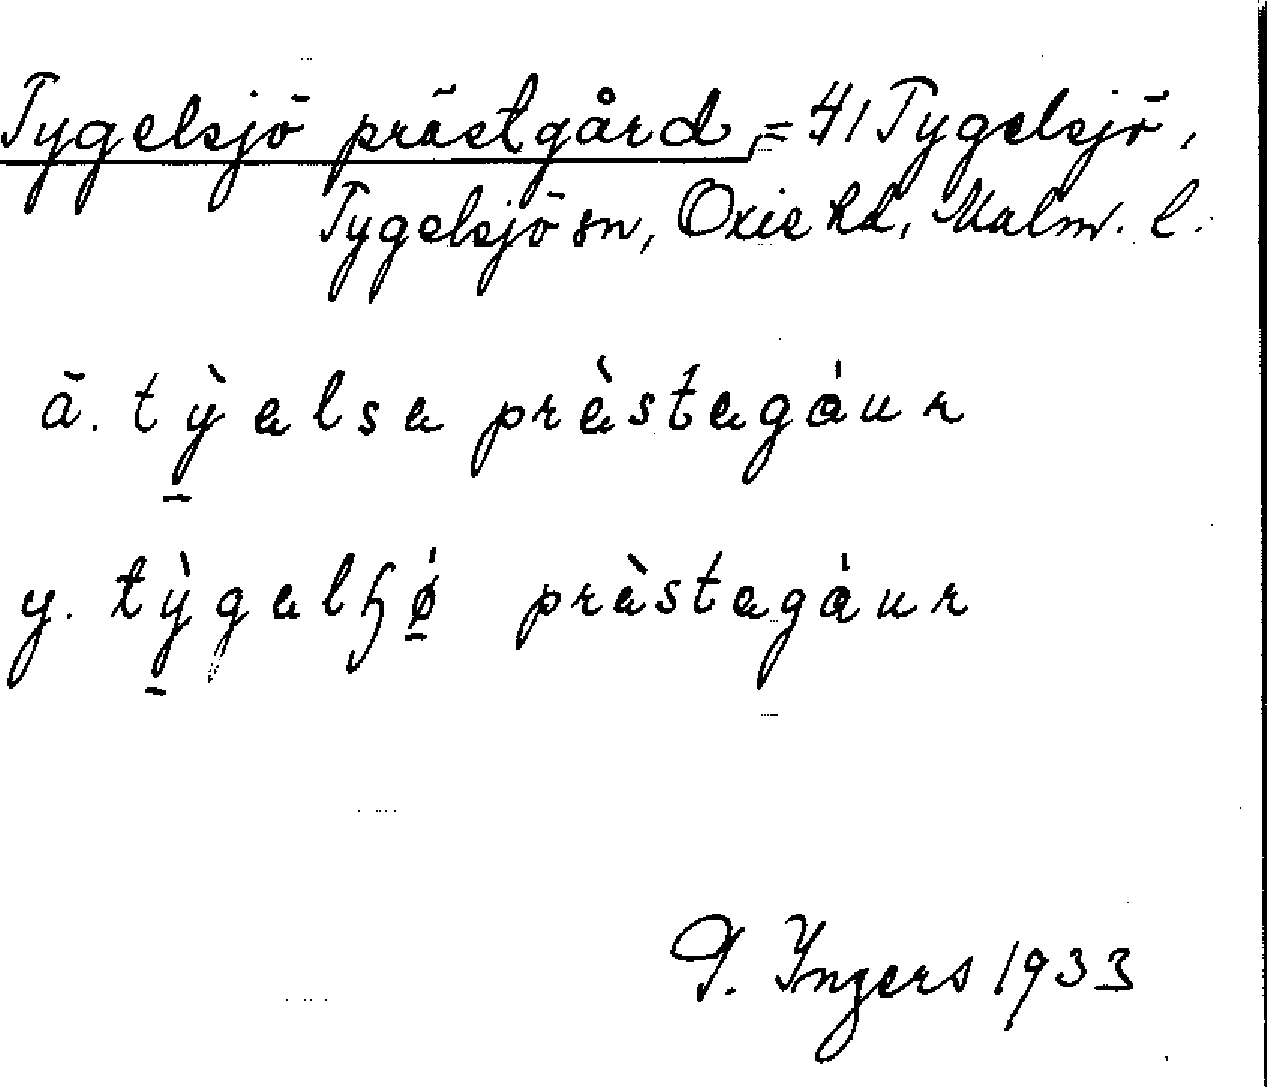 Tygelsjö prästgård, = 41 Tygelsjö,
Tygelsjö sn, Oxie hd, Malm. l.
ä. tỳ̱ɐlsɐ prɐ̀stɐgáur
y. tỳ̱gɐlɧǿ̱ prɐ̀stɐgáur
I. Ingers 1933